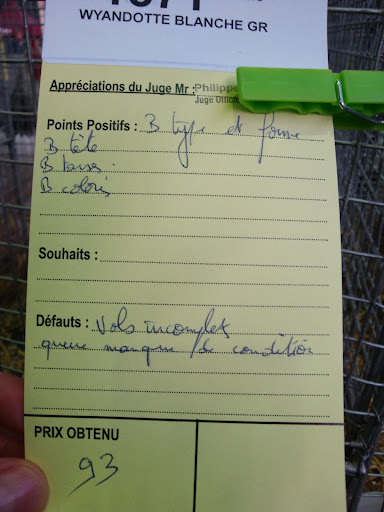 WYANDOTTE BLANCHE GR
Appréciations du Juge Mr : Philippe
Juge Offici
Points Positifs : B type et forme
B tête
B tarse.
B coloris
Souhaits :
Défauts : Vols incomplets
queue manque de condition
PRIX OBTENU
93